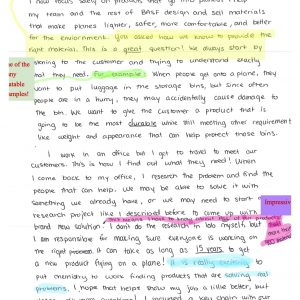 I now focus solely on products that go into planes
my team and the rest of BASF design and sell materials
that make planes lighter, safer, more comfortable, and better
for the environment. You asked how we know to provide the
right material. This is a great question! We always start by
listening to the customer and trying to understand exactly
what they need. For example: When people get onto a plane, they
want to put luggage in the storage bins, but since often
people are in a hurry, they may accidentally cause damage to
the bin. We want to give the customer a product that is
going to be the most durable while still meeting other requirements
like weight and appearance that can help protect those bins.
I work in an office but I got to travel to meet our
customers. This is how I find out what they need! When
I come back to my office, I research the problem and find the
people that can help. We may be able to solve it with
something we already have, or we may need to start a
research project like I described before to come up with
brand new solution! I don't do the research in lab myself, but
I am responsible for making sure everyone is working on
the right problem. It can take as long as 15 years to get
a new product flying on a plane! It is really exciting to
put chemistry to work finding products that are solving real
problems. I hope that helps show my job a little better, but
I included a key chain with our
one of the
many
relatable
examples!
Impressive